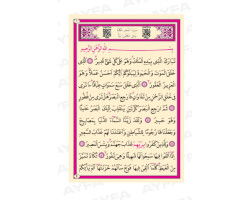 بِسْمِ اللهِ الرَّحْمٰنِ الرَّحيمِ
تَبَارَكَ الَّذي بِيَدِهِ الْمُلْكُ وَهُوَ عَلٰى كُلِّ شَيْءٍ قَديرٌ اَلَّذي
خَلَقَ الْمَوْتَ وَالْحَيٰوةَ لِيَبْلُوَكُمْ اَيُّكُمْ اَحْسَنُ عَمَلاً وَهُوَ
الْعَزيزُ الْغَفُورُ اَلَّذي خَلَقَ سَبْعَ سَمٰوَاتٍ طِبَاقًا مَا تَرٰى
في خَلْقِ الرَّحْمٰنِ مِنْ تَفَاوُتٍ فَارْجِعِ الْبَصَرَ هَلْ تَرٰى مِنْ فُطُورٍ
ثُمَّ ارْجِعِ الْبَصَرَ كَرَّتَيْنِ يَنْقَلِبْ اِلَيْكَ الْبَصَرُ خَاسِئًا
وَهُوَ حَسيرٌ وَلَقَدْ زَيَّنَّا السَّمَاءَ الدُّنْيَا بِمَصَابيحَ
وَجَعَلْنَاهَا رُجُومًا لِلشَّيَاطينِ وَاَعْتَدْنَا لَهُمْ عَذَابَ السَّعيرِ
وَلِلَّذينَ كَفَرُوا بِرَبِّهِمْ عَذَابُ جَهَنَّمَ وَبِئْسَ الْمَصيرُ
اِذَا اُلْقُوا فيهَا سَمِعُوا لَهَا شَهيقًا وَهِيَ تَفُورُ تَكَادُ تَمَيَّزُ
مِنَ الْغَيْظِ كُلَّمَا اُلْقِيَ فيهَا فَوْجٌ سَاَلَهُمْ خَزَنَتُهَا اَلَمْ يَأْتِكُمْ